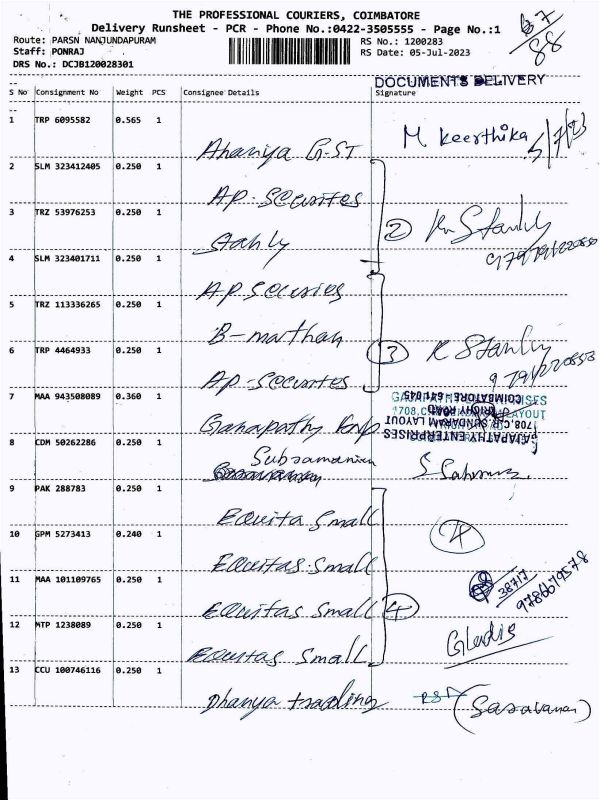 THE PROFESSIONAL COURIERS, COIMBATORE
Delivery Runsheet - PCR - Phone No.:0422-3505555 - Page No.:1
Route: PARSN NANJUNDAPURAM RS No.: 1200283
Staff: PONRAJ RS Date: 05-Jul-2023
DRS No.: DCJB120028301
67/88
DOCUMENTS DELIVERY
S No Consignment No Weight PCS Consignee Details Signature
1 TRP 6095582 0.565 1 M Keerthika 5/7/23
Ahanya G-ST
2 SLM 323412405 0.250 1
AP-Securites
3 TRZ 53976253 0.250 1 2 Stanly
Stanly
4 SLM 323401711 0.250 1
A.P. Securies
5 TRZ 113336265 0.250 1
B-mathan
6 TRP 4464933 0.250 1 3 K Stanly
AP-Securites
7 MAA 943508089 0.360 1
GAJAPATHY ENTERPRISES
1708,C.SUNDARAM LAYOUT
TRICHY ROAD
COIMBATORE-641 045
Ganapathy Enp
8 CDM 50262286 0.250 1
Subramanian
9 PAK 288783 0.250 1
Equita Small
10 GPM 5273413 0.240 1 4
Equitas Small
11 MAA 101109765 0.250 1 38717
9786679578
Equitas Small 4
12 MTP 1238089 0.250 1 Gladis
Equitas Small
13 CCU 100746116 0.250 1
Dhanya trading (Saravanan)